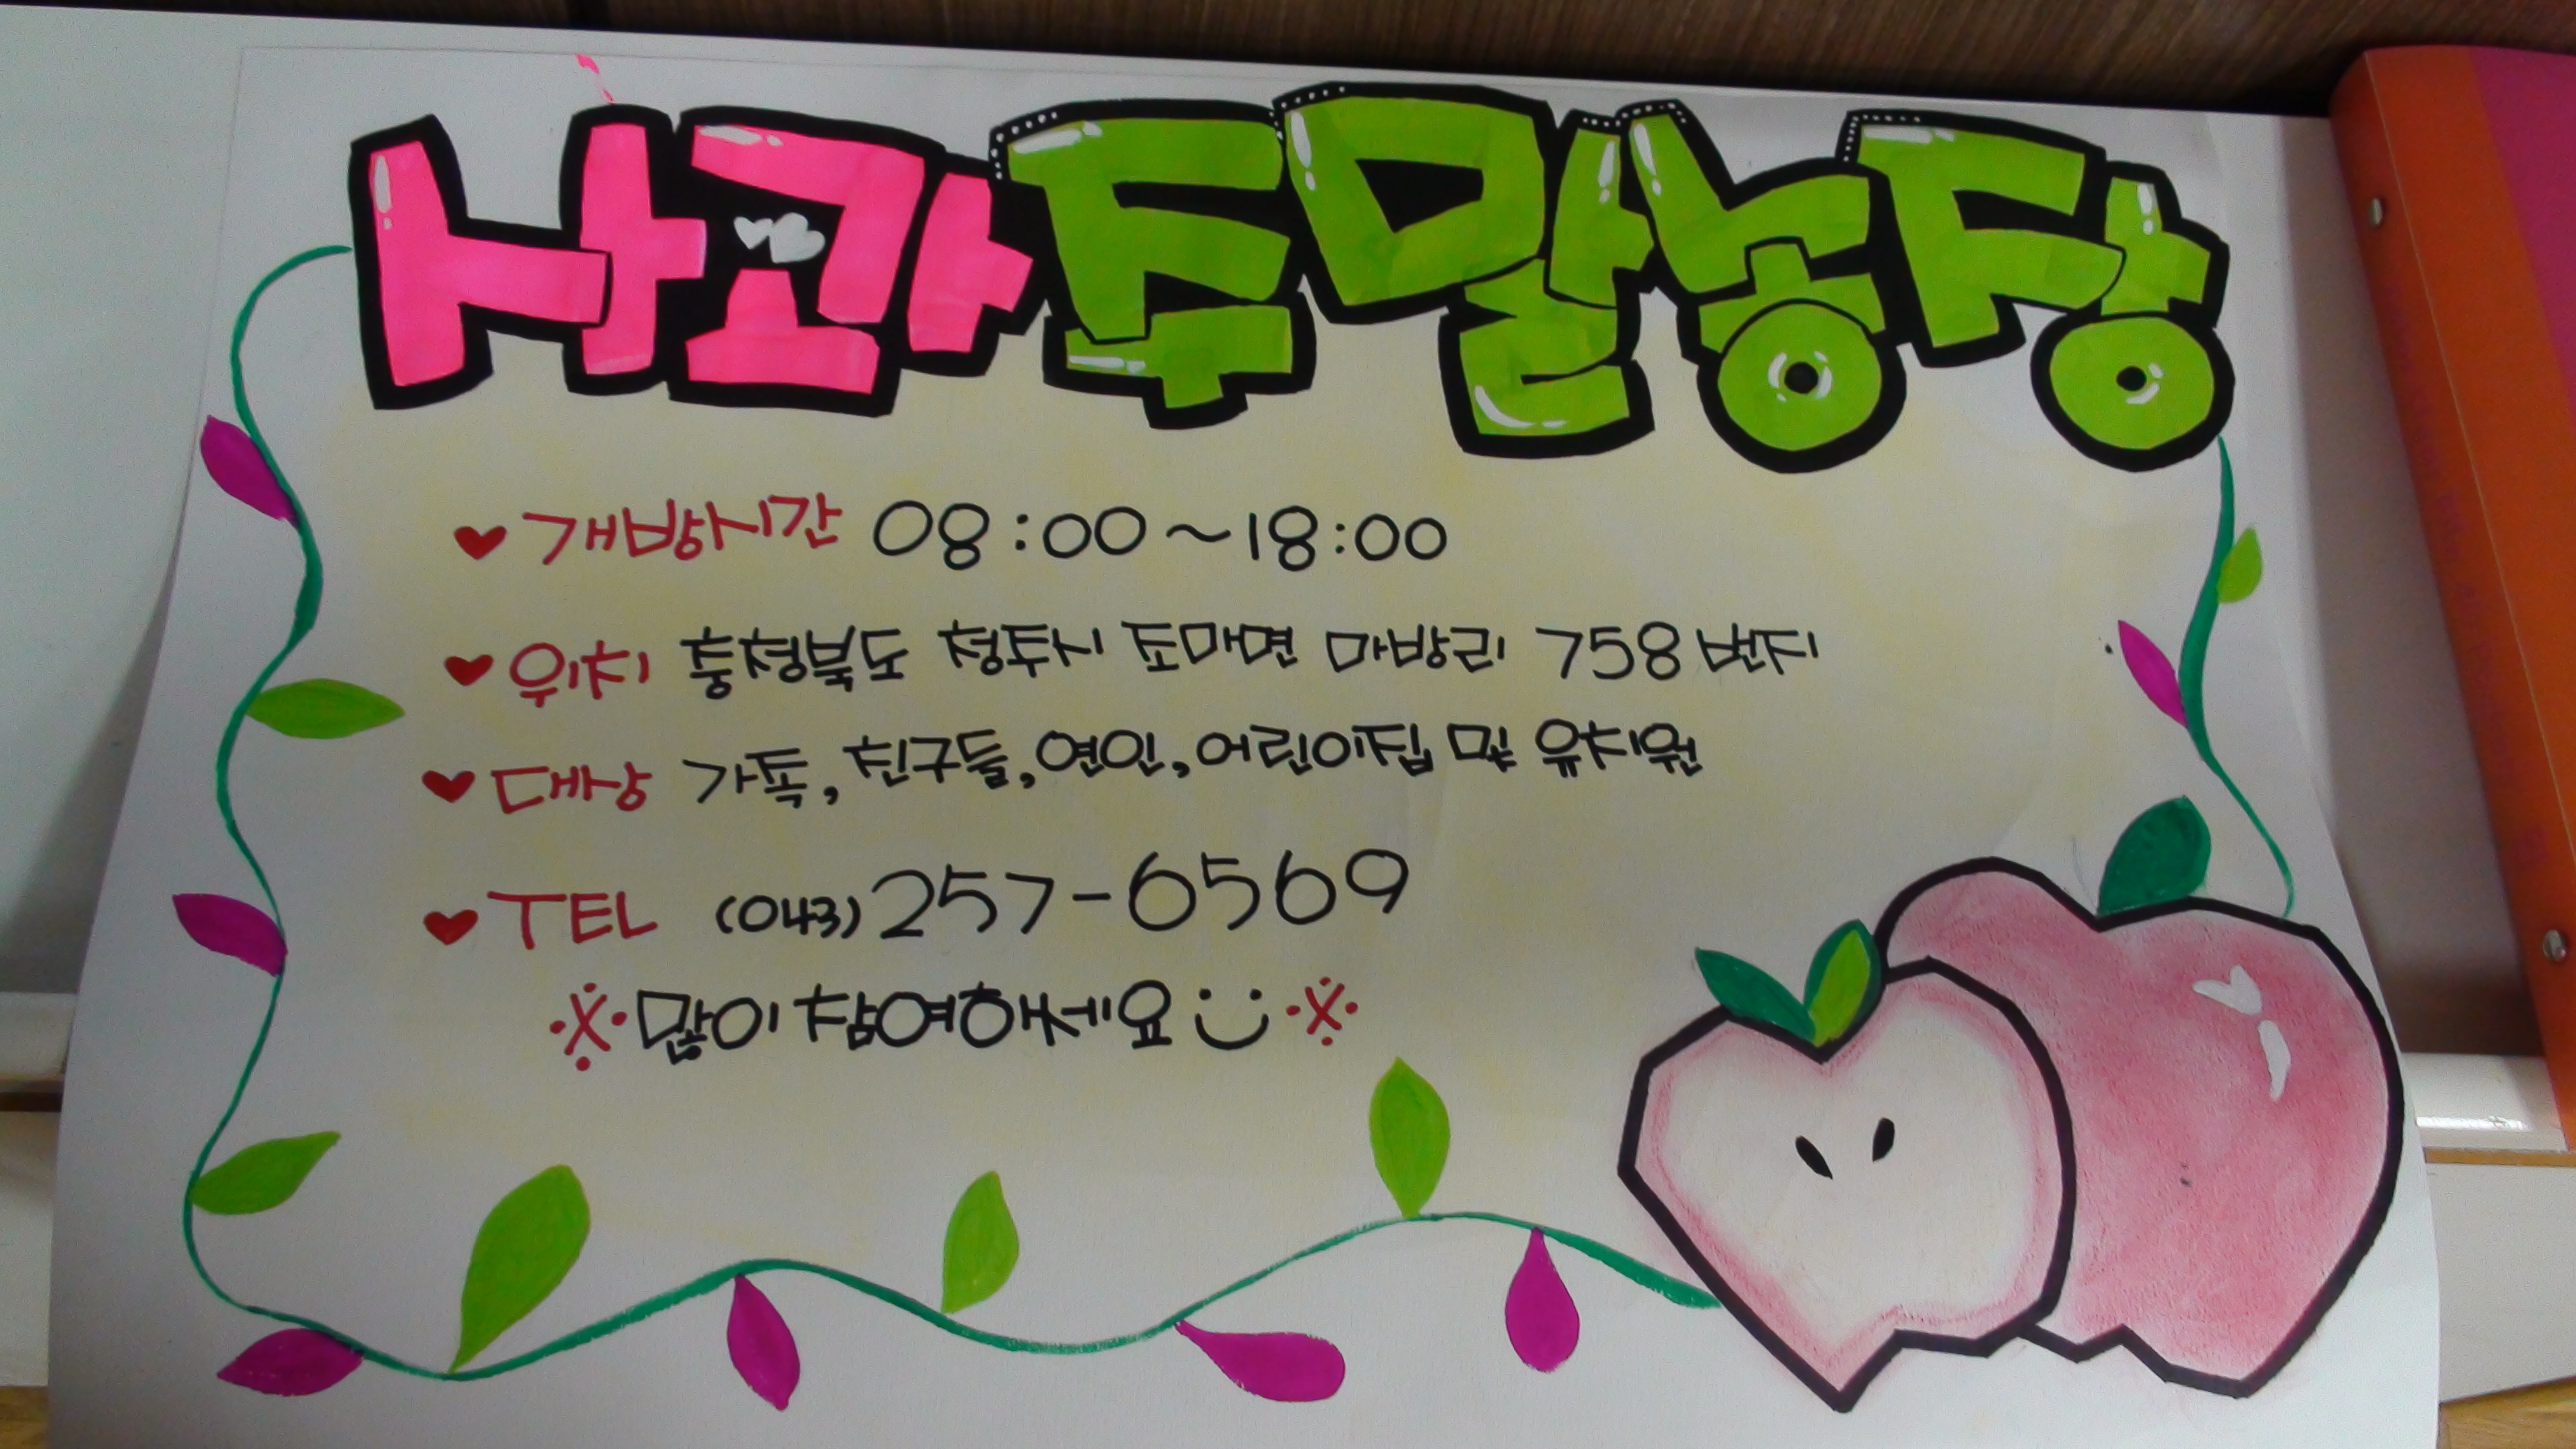 사과 주말농장
♥ 개방시간 08:00~18:00
♥ 위치 충청북도 청주시 조마면 마방리 758번지
♥ 대상 가족, 친구들, 연인, 어린이집 및 유치원
♥ TEL (043)257-6569
※많이 참여하세요※